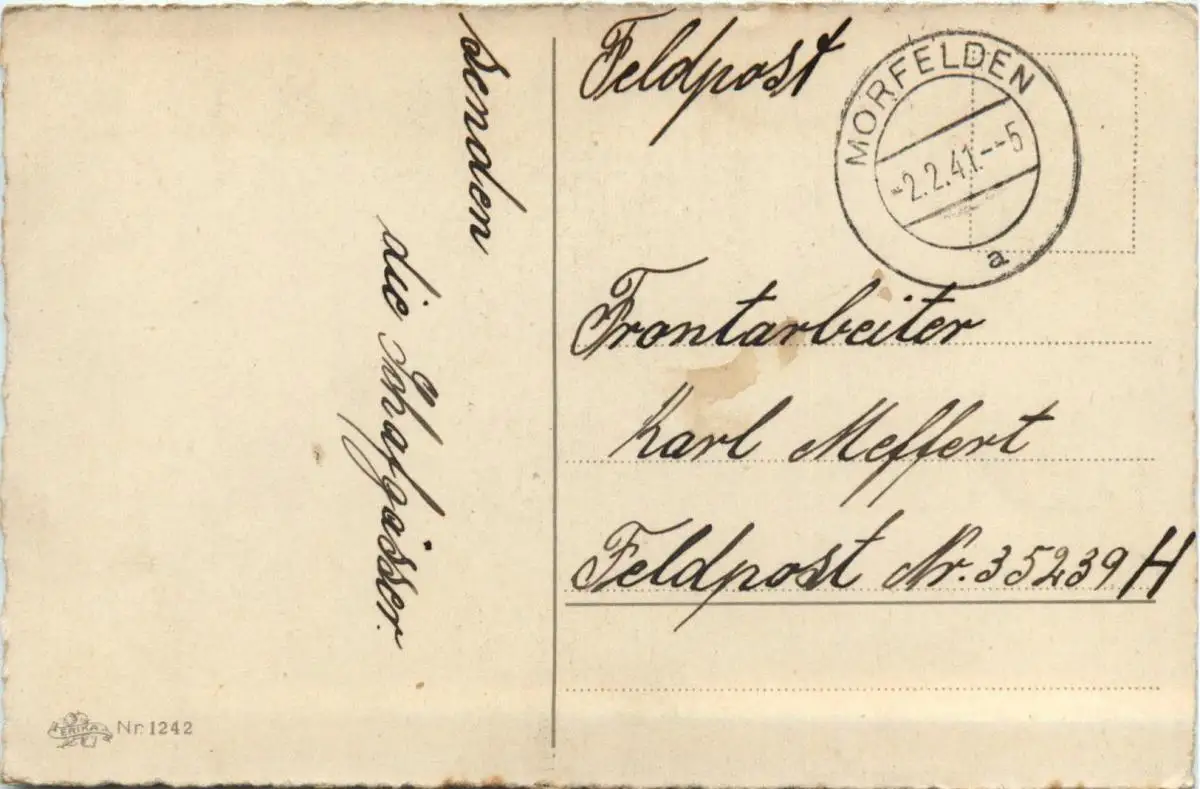 senden
die Schafgässer.
Feldpost
MÖRFELDEN
-2.2.41.--5
a
Frontarbeiter
Karl Meffert
Feldpost Nr. 35239H
ERIKA Nr. 1242